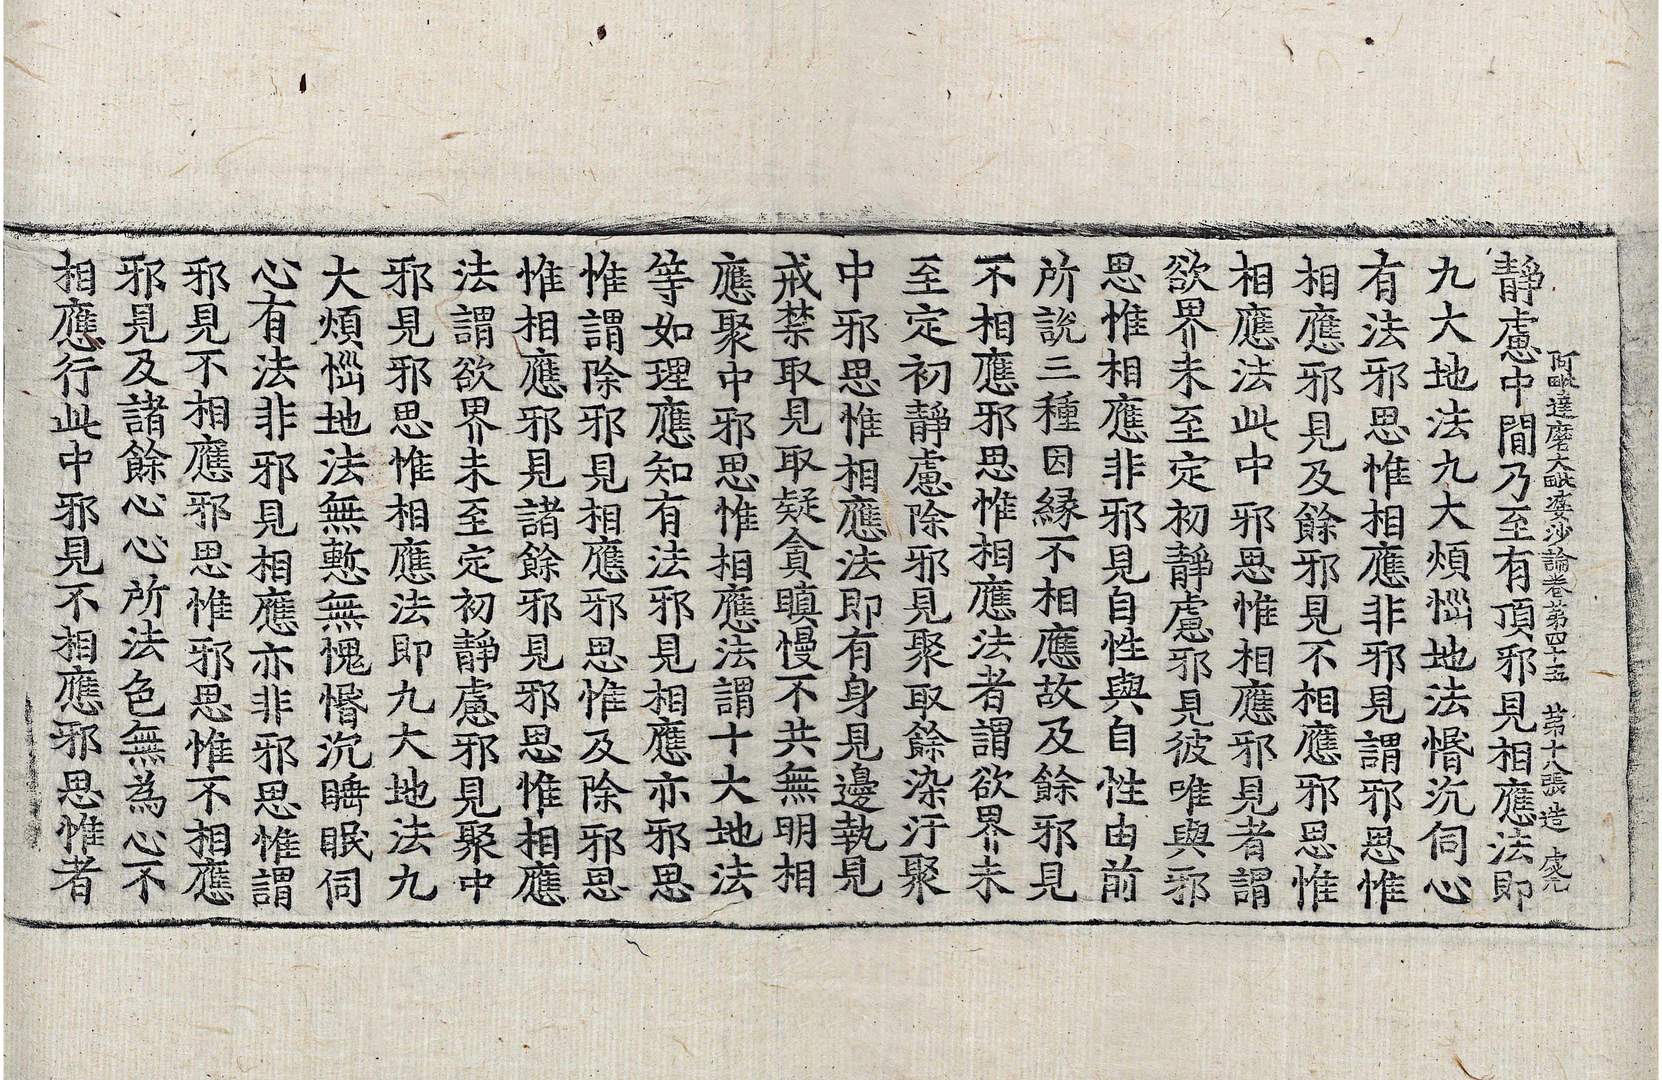 阿毗達磨大毗婆沙論卷第四十五　第十八張　造
靜慮中間乃至有頂邪見相應法即
九大地法九大煩惱地法惛沉伺心
有法邪思惟相應非邪見謂邪思惟
相應邪見及餘邪見不相應邪思惟
相應法此中邪思惟相應邪見者謂
欲界未至定初靜慮邪見彼唯與邪
思惟相應非邪見自性與自性由前
所說三種因緣不相應故及餘邪見
不相應邪思惟相應法者謂欲界未
至定初靜慮除邪見聚取餘染汙聚
中邪思惟相應法即有身見邊執見
戒禁取見取疑貪瞋慢不共無明相
應聚中邪思惟相應法謂十大地法
等如理應知有法邪見相應亦邪思
惟謂除邪見相應邪思惟及除邪思
惟相應邪見諸餘邪見邪思惟相應
法謂欲界未至定初靜慮邪見聚中
邪見邪思惟相應法即九大地法九
大煩惱地法無慙無愧惛沉睡眠伺
心有法非邪見相應亦非邪思惟謂
邪見不相應邪思惟邪思惟不相應
邪見及諸餘心心所法色無為心不
相應行此中邪見不相應邪思惟者